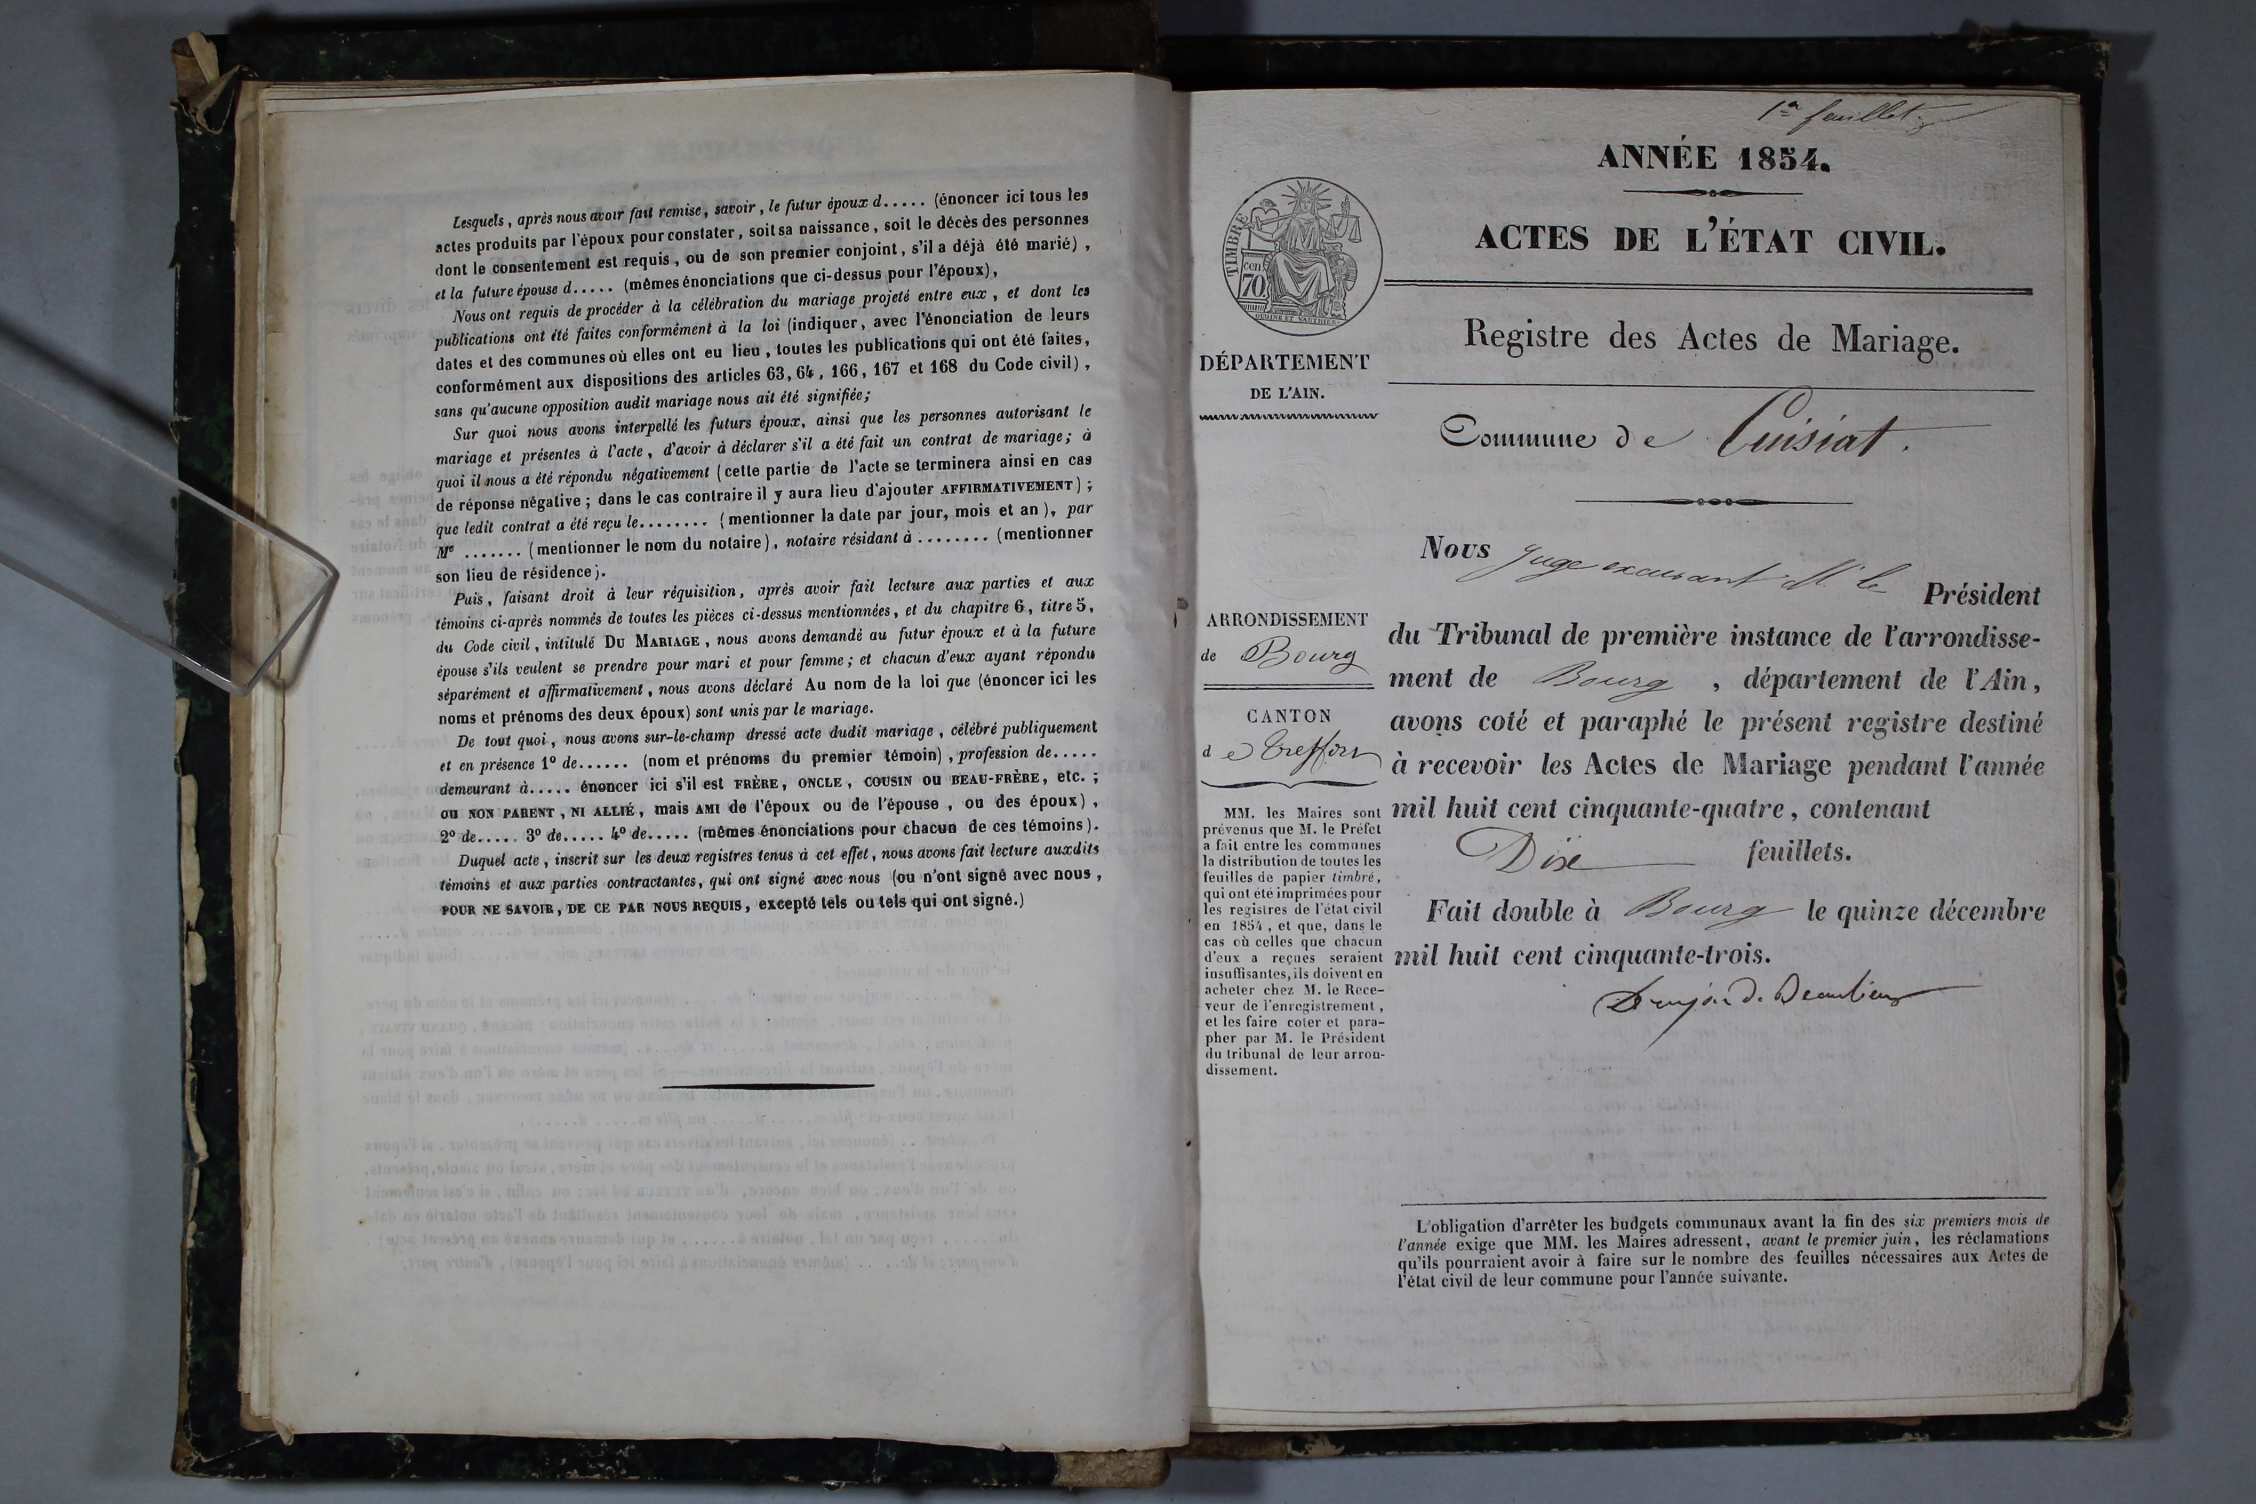 Lesquels, après nous avoir fait remise, savoir, le futur époux d..... (énoncer ici tous les
actes produits par l'époux pour constater, soit sa naissance, soit le décès des personnes
dont le consentement est requis, ou de son premier conjoint, s'il a déjà été marié),
et la future épouse d..... (mêmes énonciations que ci-dessus pour l'époux),
Nous ont requis de procéder à la célébration du mariage projeté entre eux, et dont les
publications ont été faites conformément à la loi (indiquer, avec l'énonciation de leurs
dates et des communes où elles ont eu lieu, toutes les publications qui ont été faites,
conformément aux dispositions des articles 63, 64, 166, 167 et 168 du Code civil),
sans qu'aucune opposition audit mariage nous ait été signifiée;
Sur quoi nous avons interpellé les futurs époux, ainsi que les personnes autorisant le
mariage et présentes à l'acte, d'avoir à déclarer s'il a été fait un contrat de mariage; à
quoi il nous a été répondu négativement (cette partie de l'acte se terminera ainsi en cas
de réponse négative; dans le cas contraire il y aura lieu d'ajouter AFFIRMATIVEMENT);
que ledit contrat a été reçu le........ (mentionner la date par jour, mois et an), par
Me ....... (mentionner le nom du notaire), notaire résidant à ........ (mentionner
son lieu de résidence).
Puis, faisant droit à leur réquisition, après avoir fait lecture aux parties et aux
témoins ci-après nommés de toutes les pièces ci-dessus mentionnées, et du chapitre 6, titre 5,
du Code civil, intitulé DU MARIAGE, nous avons demandé au futur époux et à la future
épouse s'ils veulent se prendre pour mari et pour femme; et chacun d'eux ayant répondu
séparément et affirmativement, nous avons déclaré Au nom de la loi que (énoncer ici les
noms et prénoms des deux époux) sont unis par le mariage.
De tout quoi, nous avons sur-le-champ dressé acte dudit mariage, célébré publiquement
et en présence 1º de...... (nom et prénoms du premier témoin), profession de.....
demeurant à..... énoncer ici s'il est FRÈRE, ONCLE, COUSIN OU BEAU-FRÈRE, etc.;
OU NON PARENT, NI ALLIÉ, mais AMI de l'époux ou de l'épouse, ou des époux),
2º de..... 3º de..... 4º de..... (mêmes énonciations pour chacun de ces témoins).
Duquel acte, inscrit sur les deux registres tenus à cet effet, nous avons fait lecture auxdits
témoins et aux parties contractantes, qui ont signé avec nous (ou n'ont signé avec nous,
POUR NE SAVOIR, DE CE PAR NOUS REQUIS, excepté tels ou tels qui ont signé.)
1er feuillet
ANNÉE 1854.
ACTES DE L'ÉTAT CIVIL.
TIMBRE
cen
70
Registre des Actes de Mariage.
DÉPARTEMENT
DE L'AIN.
Commune de Cuisiat.
Nous Juge excusant Mr le Président
du Tribunal de première instance de l'arrondisse-
ment de Bourg, département de l'Ain,
avons coté et paraphé le présent registre destiné
à recevoir les Actes de Mariage pendant l'année
mil huit cent cinquante-quatre, contenant
Dix feuillets.
Fait double à Bourg le quinze décembre
mil huit cent cinquante-trois.
ARRONDISSEMENT
de Bourg
CANTON
de Treffort
MM. les Maires sont
prévenus que M. le Préfet
a fait entre les communes
la distribution de toutes les
feuilles de papier timbré,
qui ont été imprimées pour
les registres de l'état civil
en 1854, et que, dans le
cas où celles que chacun
d'eux a reçues seraient
insuffisantes, ils doivent en
acheter chez M. le Rece-
veur de l'enregistrement,
et les faire coter et para-
pher par M. le Président
du tribunal de leur arron-
dissement.
L'obligation d'arrêter les budgets communaux avant la fin des six premiers mois de
l'année exige que MM. les Maires adressent, avant le premier juin, les réclamations
qu'ils pourraient avoir à faire sur le nombre des feuilles nécessaires aux Actes de
l'état civil de leur commune pour l'année suivante.